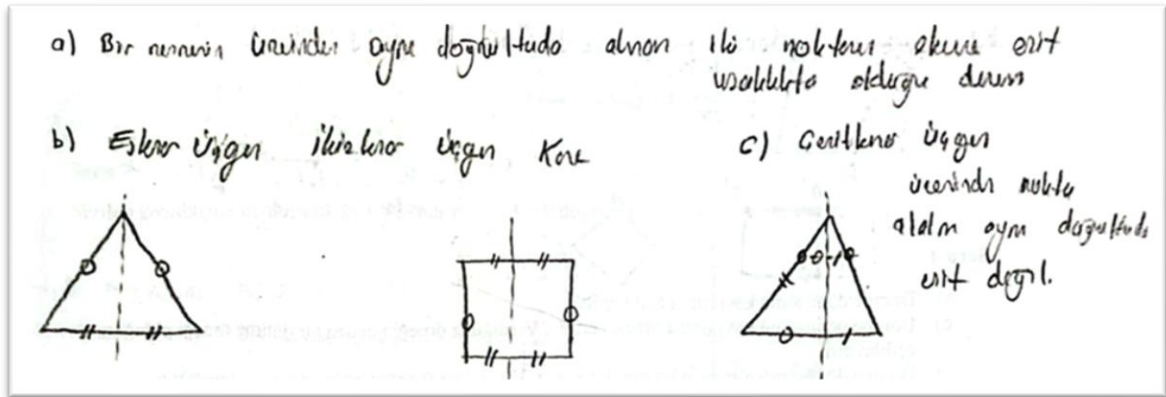 a) Bir nesnenin üzerinden aynı doğrultuda alınan iki noktanın eksene eşit
uzaklıkta olduğu durum
b) Eşkenar üçgen ikizkenar üçgen Kare
c) Çeşitkenar üçgen
üzerinde nokta
alalım aynı doğrultuda
eşit değil.